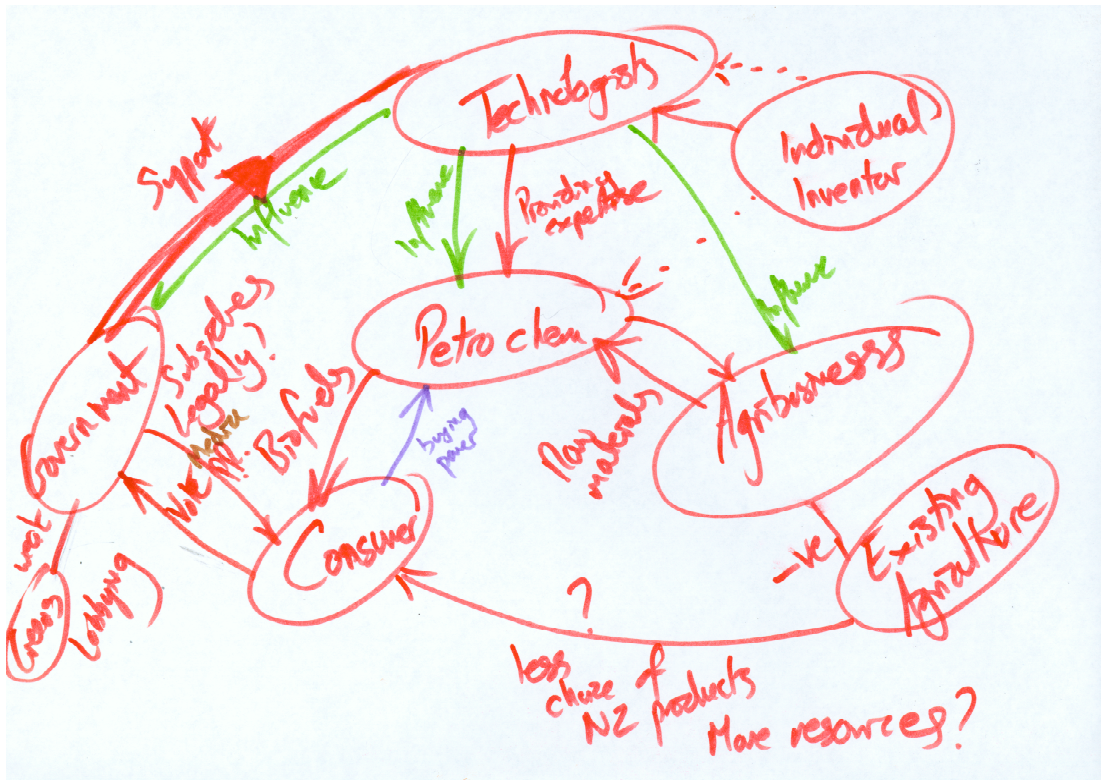 Technologists
Individual
Inventor
Support
Influence
Influence
Providing
expertise
Influence
Petrochem
Government
Subsidies
Legally?
Media
Vote
Biofuels
buying
power
Raw
materials
Agribusinesss
Consumer
-ve
Existing
Agriculture
weak
Lobbying
Greens
?
less
choice of
NZ products
More resources?